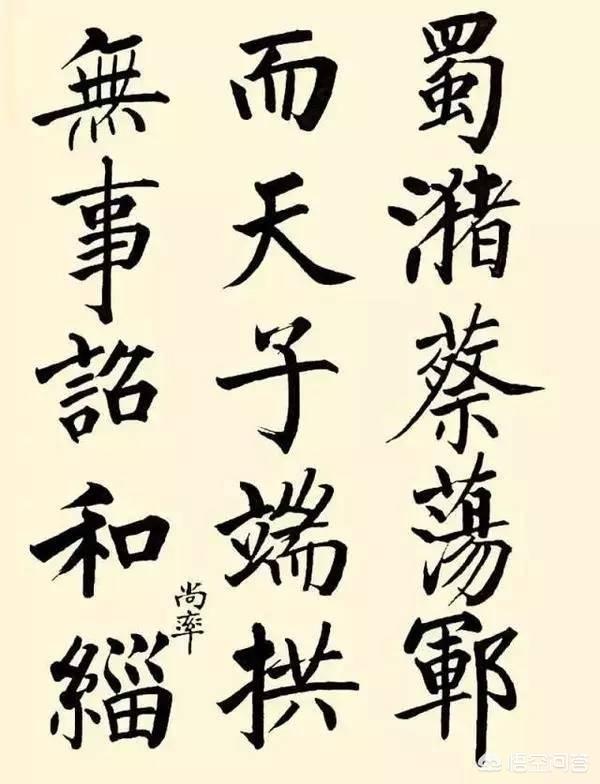 蜀潴蔡蕩鄆
而天子端拱
無事詔和緇
尚率
悟空问答